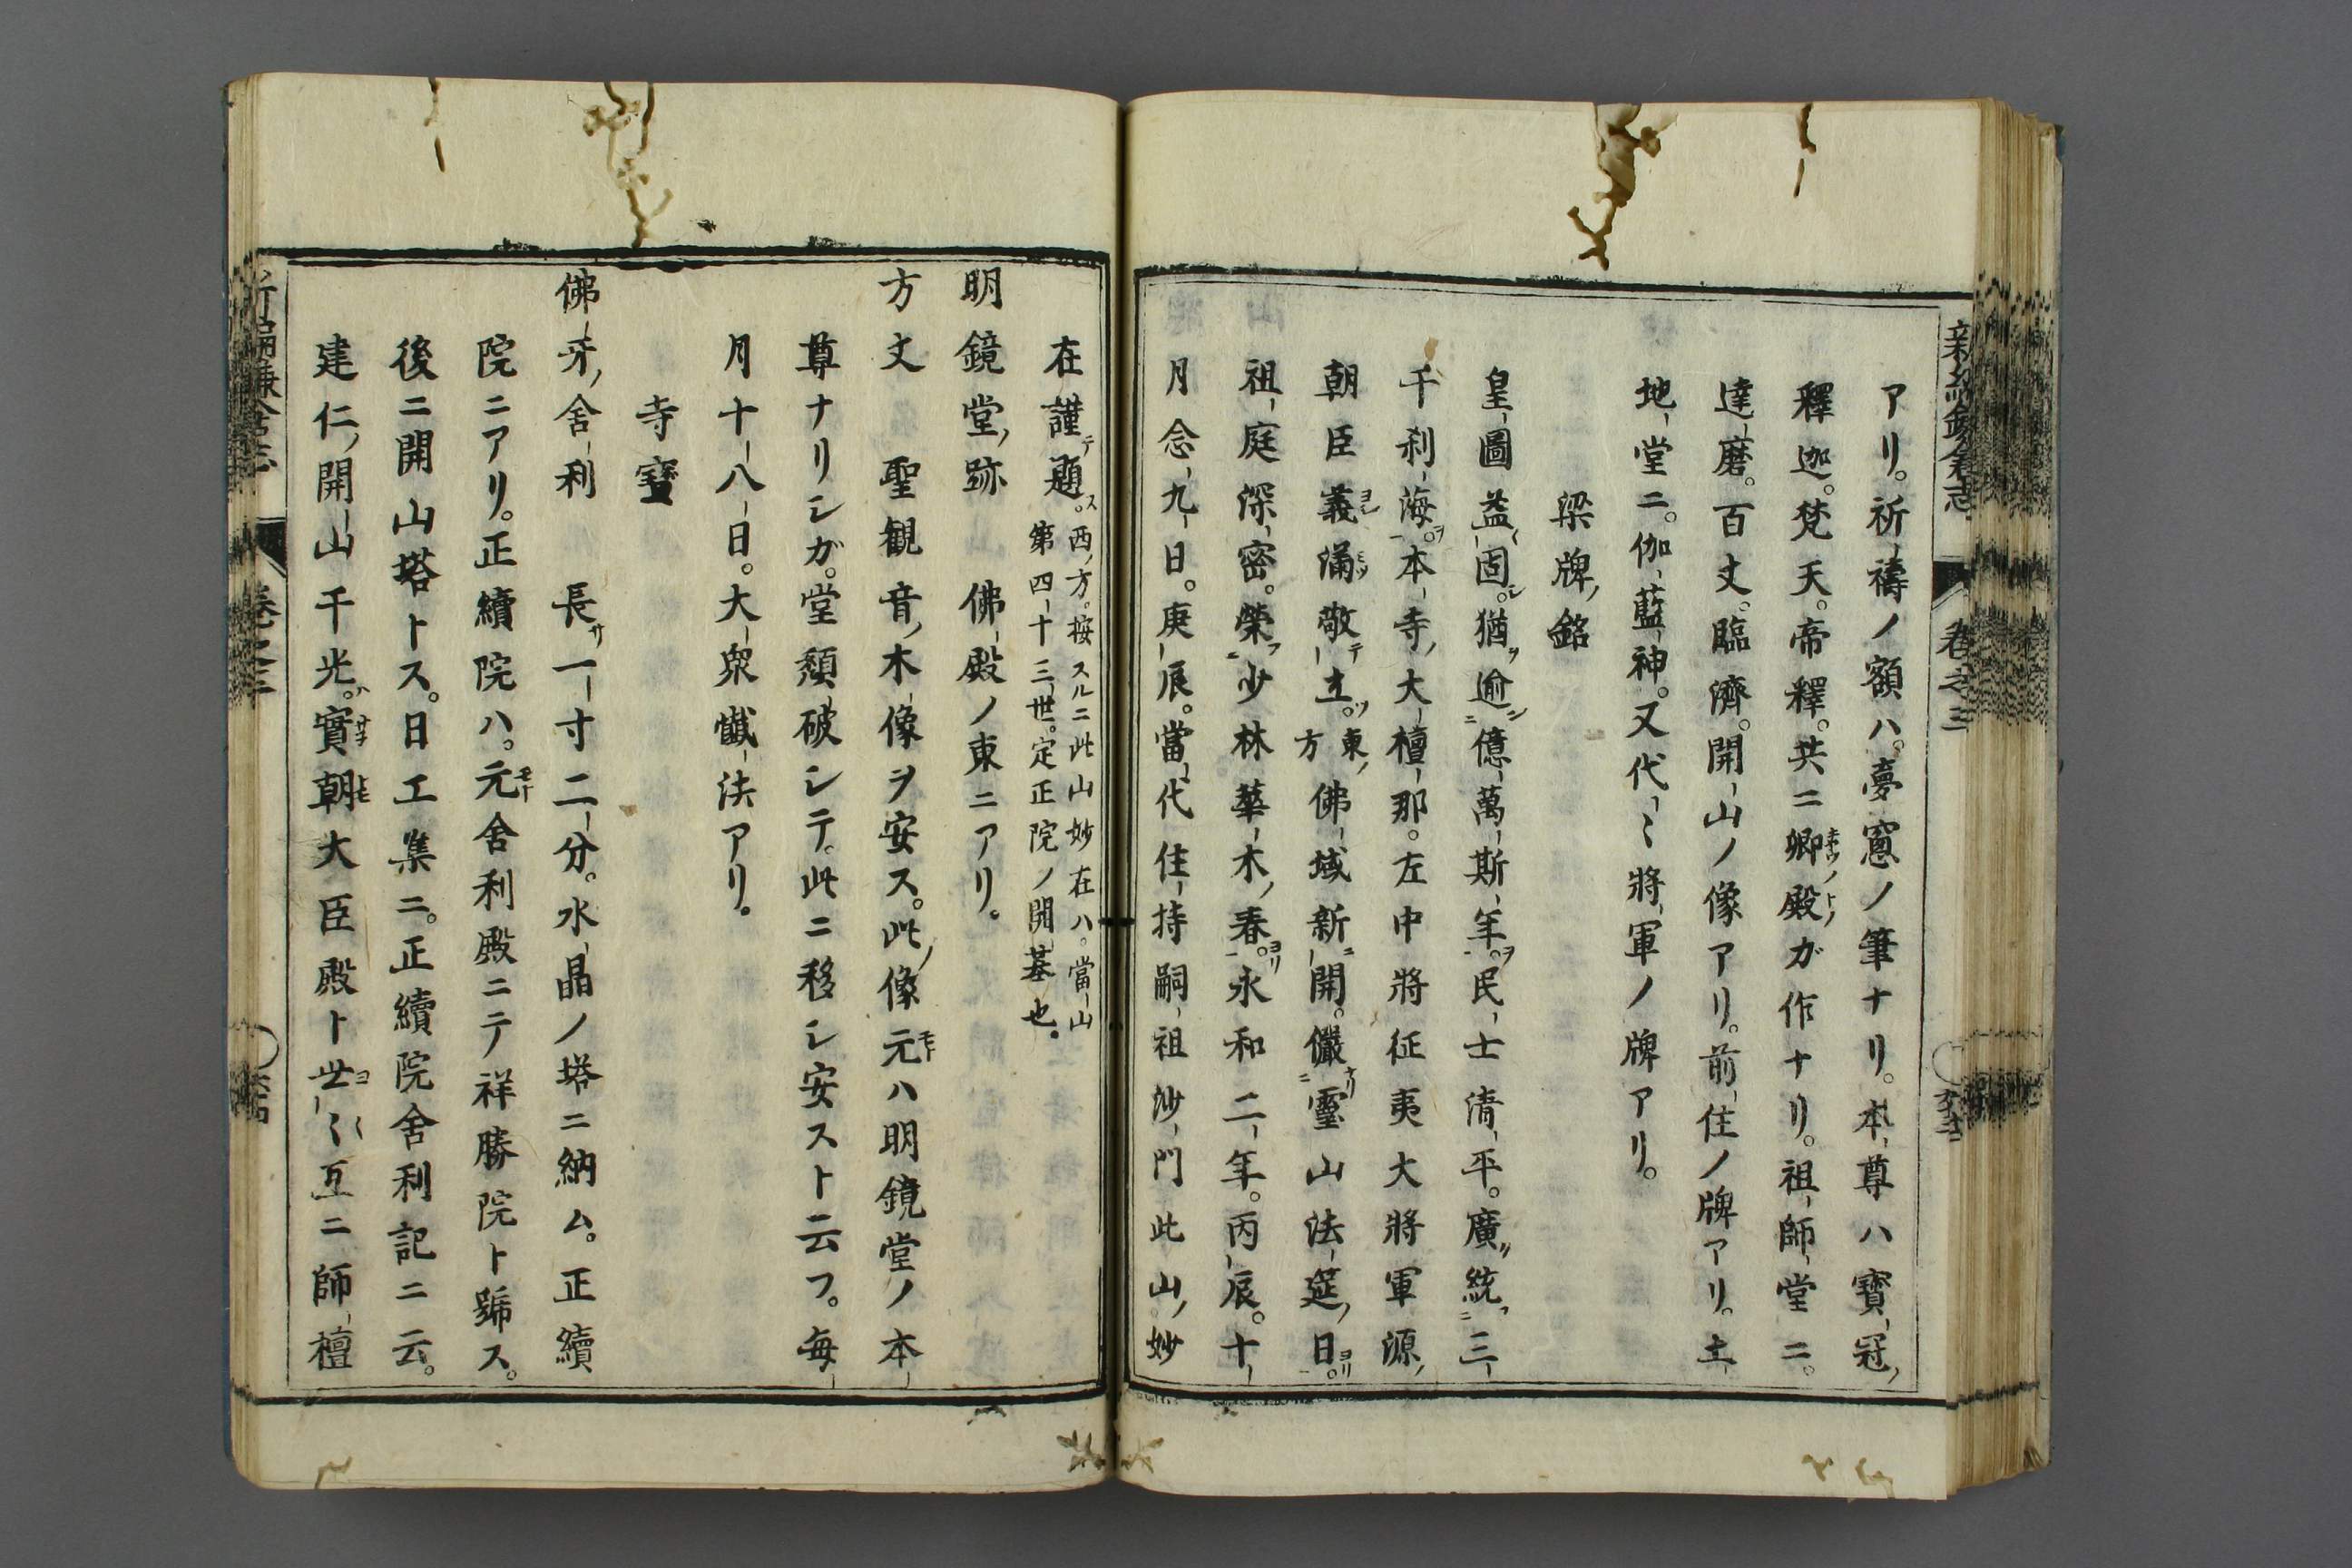 新編鎌倉志 卷之三
アリ。祈禱ノ額ハ。夢窻ノ筆ナリ。本尊ハ寶冠ノ
釋迦。梵天。帝釋。共ニ卿殿ガ作ナリ。祖師堂ニ。
達磨。百丈。臨濟。開山ノ像アリ。前住ノ牌アリ。土
地堂ニ。伽藍神。又代〻將軍ノ牌アリ。
梁牌ノ銘
皇圖益固。猶逾億萬斯年。民士清平。廣統三
千刹海。本寺大檀那。左中將征夷大將軍源
朝臣義滿敬立。東ノ方佛域新開。儼靈山法筵ノ日。
祖庭深密。榮少林華木ノ春。永和二年。丙辰。十
月念九日。庚辰。當代住持嗣祖沙門此山妙
在謹題。西ノ方。按スルニ此山妙在ハ。當山
第四十三世。定正院ノ開基也。
明鏡堂ノ跡 佛殿ノ東ニアリ。
方丈 聖觀音ノ木像ヲ安ス。此ノ像元ハ明鏡堂ノ本
尊ナリシガ。堂頽破シテ。此ニ移シ安スト云フ。毎
月十八日。大衆懺法アリ。
寺寶
佛牙ノ舍利 長サ一寸二分。水晶ノ塔ニ納ム。正續
院ニアリ。正續院ハ。元舍利殿ニテ祥勝院ト號ス。
後ニ開山塔トス。日工集ニ。正續院舍利記ニ云。
建仁ノ開山千光ハ。實朝大臣殿ト世〻互ニ師檀
新編鎌倉志 卷之三